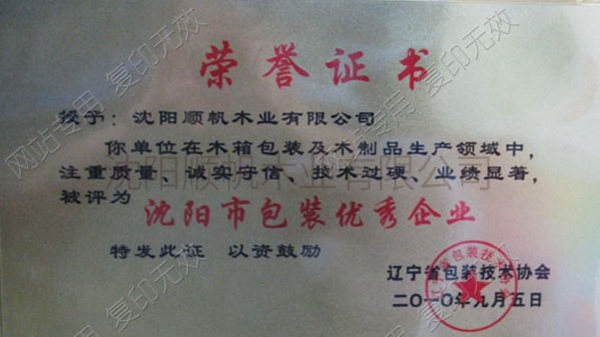 荣誉证书
授予：沈阳顺帆木业有限公司
你单位在木箱包装及木制品生产领域中，
注重质量、诚实守信、技术过硬、业绩显著，
被评为 沈阳市包装优秀企业
特发此证 以资鼓励
辽宁省包装技术协会
二〇一〇年九月五日
辽宁省包装技术协会
沈阳顺帆木业有限公司
网站专用 复印无效
网站专用 复印无效
网站专用 复印无效